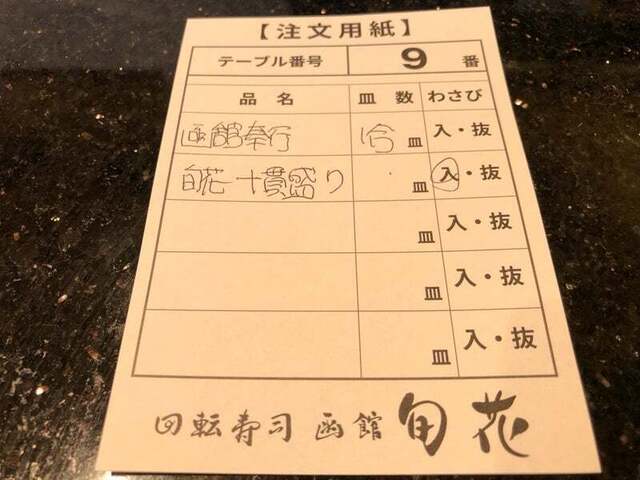 【注文用紙】
テーブル番号 9 番
品名 皿数 わさび
函館奉行 冷 皿 入・抜
旬花十貫盛り 皿 入・抜
皿 入・抜
皿 入・抜
皿 入・抜
回転寿司 函館 旬花